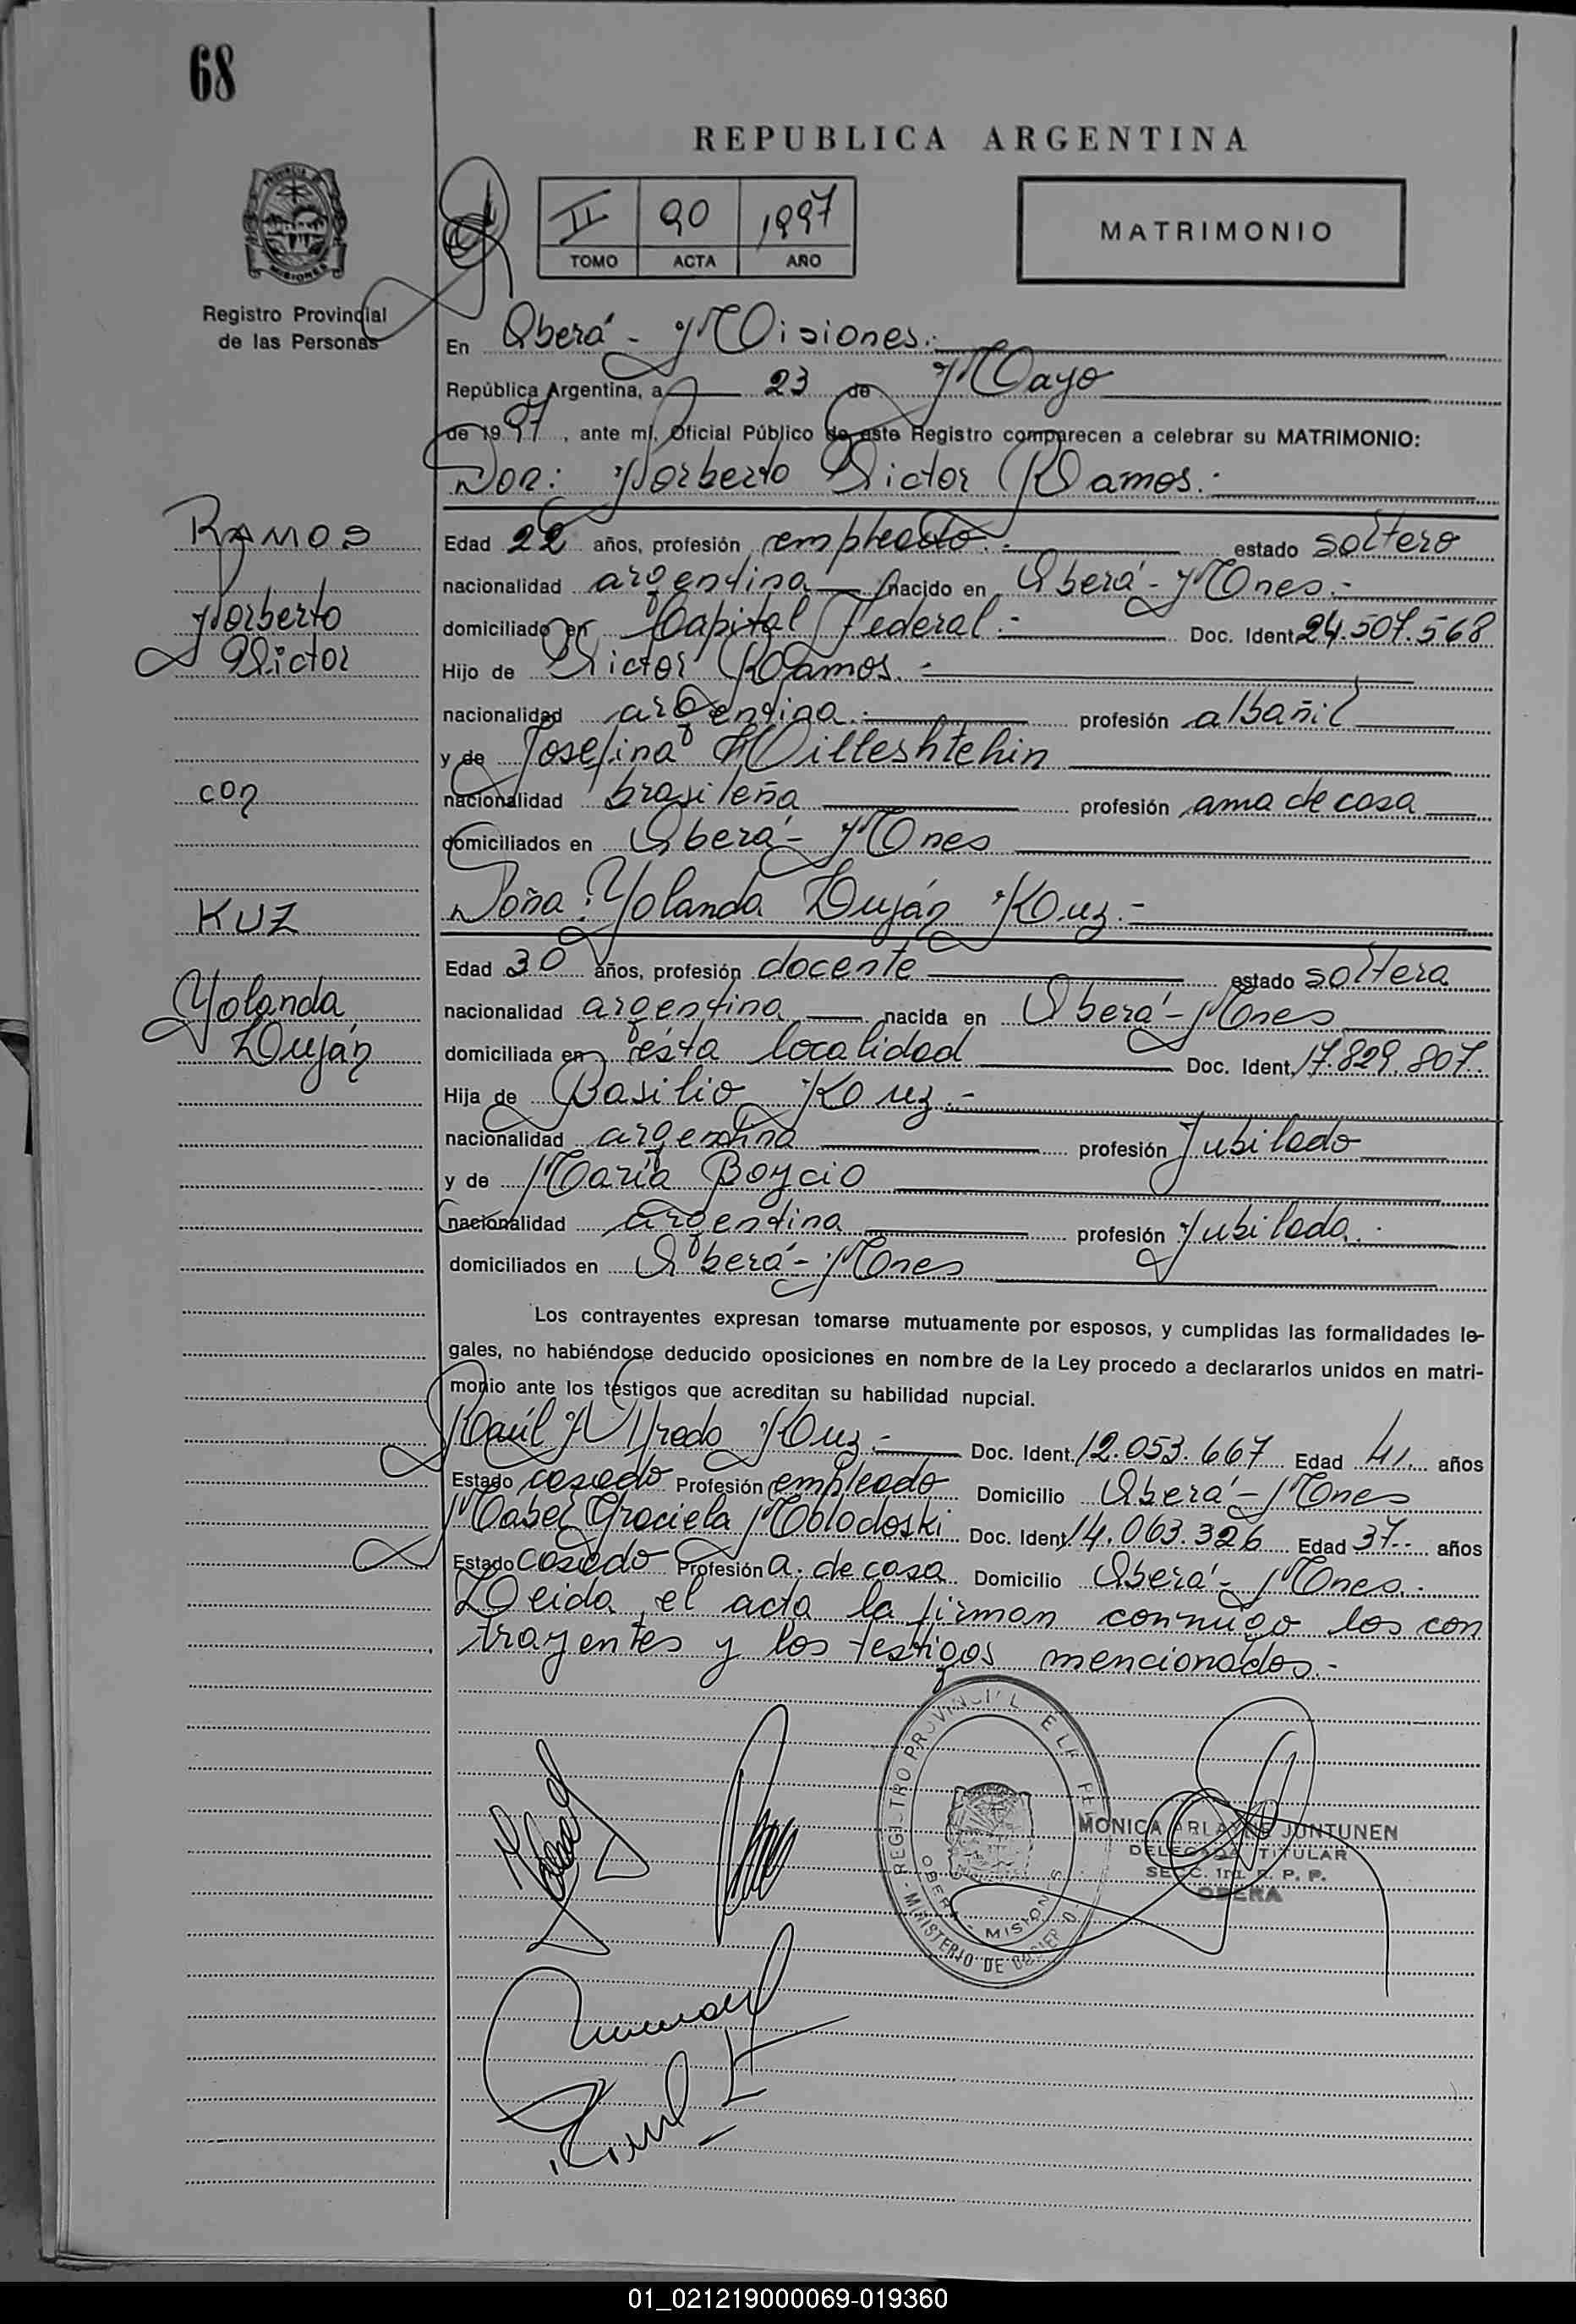 68
REPUBLICA ARGENTINA
II 90 1997
TOMO ACTA AÑO
MATRIMONIO
PROVINCIA DE
MISIONES
Registro Provincial
de las Personas
En Oberá - Misiones.-
República Argentina, a 23 de Mayo
de 1997, ante mí, Oficial Público de este Registro comparecen a celebrar su MATRIMONIO:
Don: Norberto Victor Ramos.-
RAMOS
Norberto
Victor
Edad 22 años, profesión empleado.- estado soltero
nacionalidad argentina nacido en Oberá - Mnes.-
domiciliado en Capital Federal.- Doc. Ident. 24.507.568
Hijo de Victor Ramos.-
nacionalidad argentina.- profesión albañil
y de Josefina Willeshtehin
con
nacionalidad brasileña profesión ama de casa
domiciliados en Oberá - Mnes
Doña: Yolanda Luján Kuz.-
KUZ
Yolanda
Luján
Edad 30 años, profesión docente estado soltera
nacionalidad argentina nacida en Oberá - Mnes
domiciliada en ésta localidad Doc. Ident. 17.829.807.
Hija de Basilio Kuz.-
nacionalidad argentina profesión Jubilado
y de María Boycio
nacionalidad argentina profesión Jubilada.-
domiciliados en Oberá - Mnes
Los contrayentes expresan tomarse mutuamente por esposos, y cumplidas las formalidades le-
gales, no habiéndose deducido oposiciones en nombre de la Ley procedo a declararlos unidos en matri-
monio ante los testigos que acreditan su habilidad nupcial.
Raúl Alfredo Kuz.- Doc. Ident. 12.053.667 Edad 41 años
Estado casado Profesión empleado Domicilio Oberá - Mnes
Mabel Graciela Molodoski Doc. Ident. 14.063.326 Edad 37 años
Estado casado Profesión a. de casa Domicilio Oberá - Mnes.-
Leida el acta la firman conmigo los con
trayentes y los testigos mencionados.-
REGISTRO PROVINCIAL DE LAS PER
MINISTERIO DE GOBIERNO
OBERA - MISIONES
MONICA ARLAINE JUNTUNEN
DELEGADA TITULAR
SECC. 1ra. R. P. P.
OBERA
01_021219000069-019360